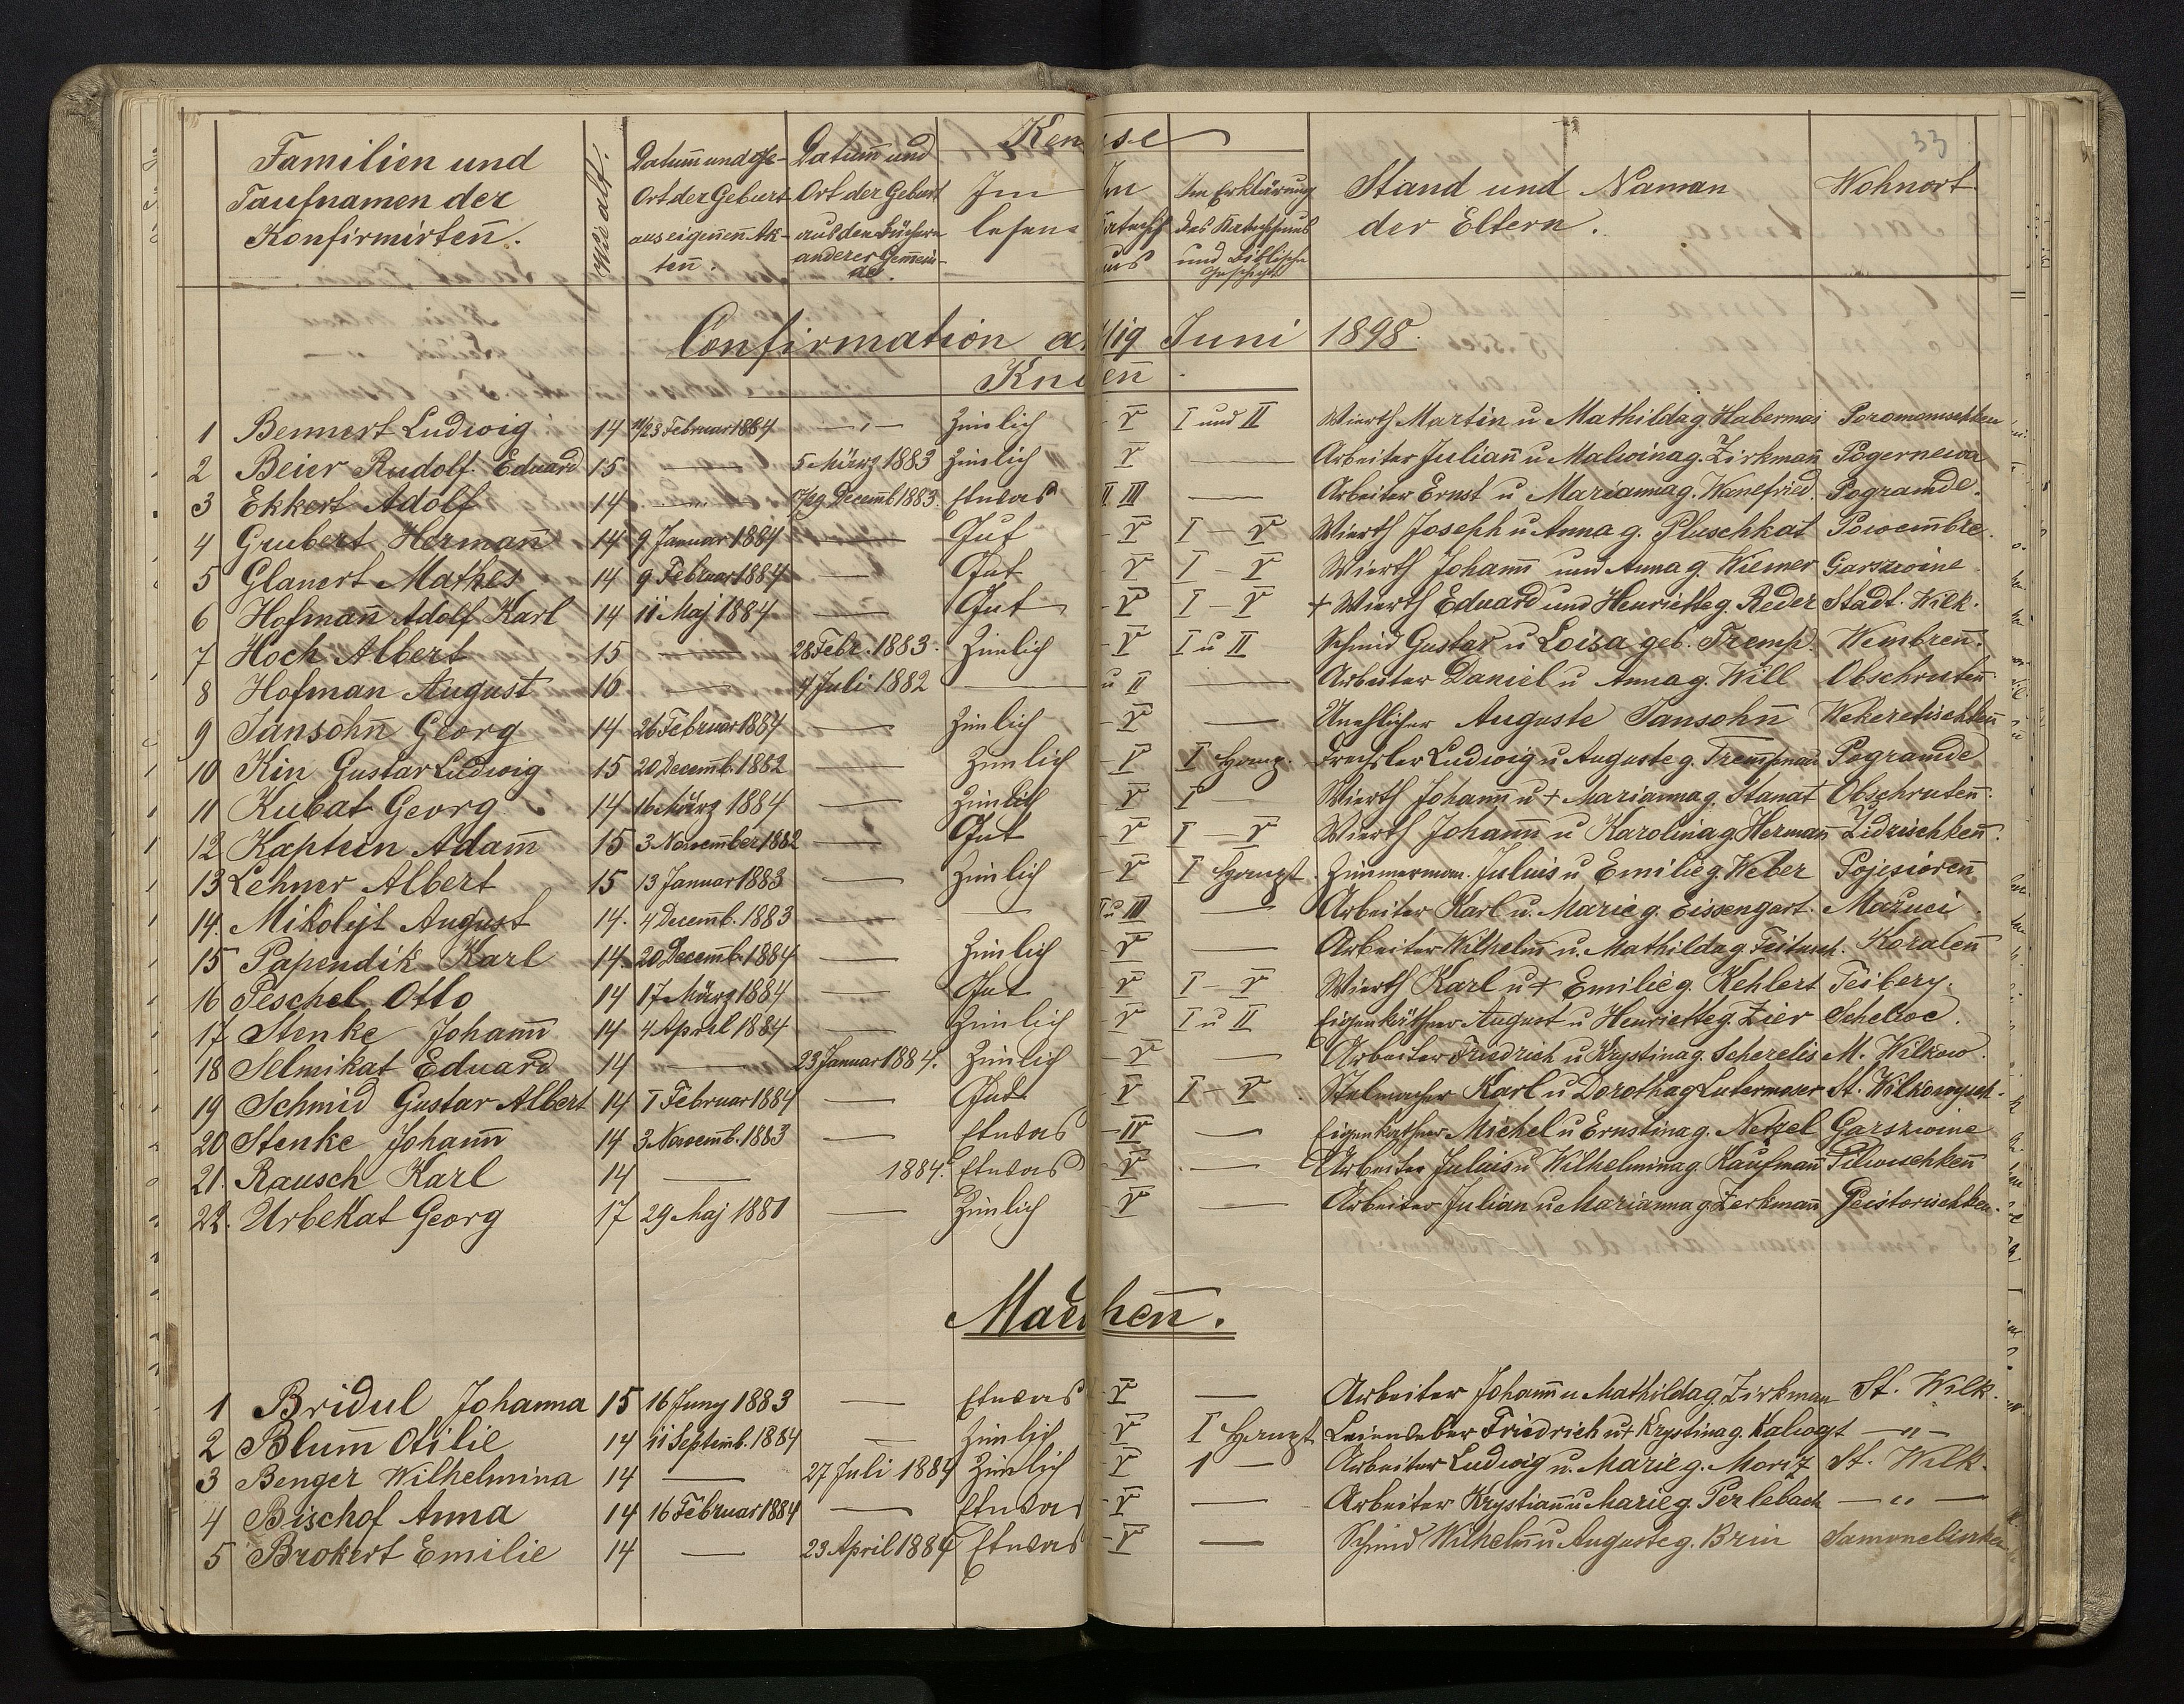 33
Familien und Taufnamen der Konfirmirten. Wie alt. Datum und Ort der Geburt aus eigenen Akten. Datum und Ort der Geburt aus den Büchern anderer Gemeinde. Im lesen Im Im Erklärung des Katechismus und Biblische Geschichte Stand und Namen der Eltern. Wohnort
Confirmation Juni 1898.
Kn en
1 Bennert Ludwig 14 11/23 Februar 1884 Zimlich - V I und II Wierth Martin u Mathilda g. Habermas
2 Beier Rudolf Eduard 15 — 5 März 1883 Zimlich V — Arbeiter Juliañ u Malwina g. Zirkmañ Pogernewa
3 Ekkert Adolf 14 — Decemb 1883. Etwas II III — Arbeiter Ernst u Marianna g. Wanefried. Pogramde.
4 Grubert Hermañ 14 9 Januar 1884 — Gut - V I — V Wierth Joseph u Anna g. Pluschkat Powembre.
5 Glanert Mathes 14 9 Februar 1884 — Gut V I — V Wierth Johann und Anna g. Wiemer Garszwine
6 Hofmañ Adolf Karl 14 11 Maj 1884 — Gut - V I — V + Wierth Eduard und Henriette g. Reder Stadt. Wilk.
7 Hoch Albert 15 — 28 Febr. 1883. Zimlich - V I u II Schmid Gustav u Loisa geb. Tremp. Wembreñ.
8 Hofman August 16 — 4 Juli 1882 — u II — Arbeiter Daniel u Anna g. Will Obschruteñ
9 Jansohñ Georg 14 26 Februar 1884 — Zimlich - V — Unehlicher Auguste Jansohñ Wekeretischkeñ
10 Kin Gustav Ludwig 15 20 Decemb. 1882 — Zimlich - V I Haup. Drechsler Ludwig u Auguste g. Pogramde
11 Kubat Georg 14 16 März 1884 — Zimlich - V I — Wierth Johann u + Marianna g. Stanat Obschruteñ.
12 Kaptein Adam̃ 15 3 November 1882 — Gut - V I — V Wierth Johann u Karolina g. Herman Zidzischkeñ.
13 Lehner Albert 15 13 Januar 1883 — Zimlich - V I Haupt. Zimmerman. Julius u Emilie g. Weber Pojesioreñ
14. Mikolejt August 14. 4 Decemb. 1883 — — I u III — Arbeiter Karl u. Marie g. Eissengart. Mažuci.
15 Papendik Karl 14 20 Decemb. 1884 — Zimlich - V — Arbeiter Wilhelm u. Mathilda g. Koraleñ
16 Peschel Otto 14 17 März 1884 — Gut V I — V Wierth Karl u + Emilie g. Kehlert Teibery.
17 Stenke Johann 14 4 April 1884 — Zimlich - V I u II Eigenkäthner August u Henriette g. Zier Schelwe.
18 Selmikat Eduard 14 — 23 Januar 1884. Zimlich - V — Arbeiter Friedrich u Krystina g. Scherelis M. Wilkow.
19 Schmid Gustav Albert 14 1 Februar 1884 — Gut V I — V. Stelmacher Karl u Dorotha g Lutermoser St. Wilkowysch.
20 Stenke Johann 14 3 Novemb. 1883 — Etwas - IV — Eigenkathner Michel u Ernstina g. Netzel Garszwine
21. Rausch Karl 14 — 1884. Etwas - V — Arbeiter Julius u Wilhelmina g. Kaufmañ Pilwischkeñ
22. Urbekat Georg 17 29 Maj 1881 — Zimlich - V — Arbeiter Julian u Marianna g. Zerkmañ
Mae heñ.
1 Bridul Johanna 15 16 Juny 1883 — Etwas - V — Arbeiter Johann u Mathilda g. Zirkman St. Wilk.
2 Blum̃ Otilie 14 11 Septemb. 1884 — Zimlich V I Haupt Leineweber Friedrich u + Krystina g. Kalwgt — " —
3 Benger Wilhelmina 14 — 27 Juli 1884 Zimlich - V 1 — Arbeiter Ludwig u. Marie g. Moritz St. Wilk.
4 Bischof Anna 14 16 Februar 1884 — Etwas - V — Arbeiter Krystiañ u Marie g. Perlebach — " —
5 Brokert Emilie 14 — 23 April 1884 Etwas - V — Schmid Wilhelm u Auguste g. Brin